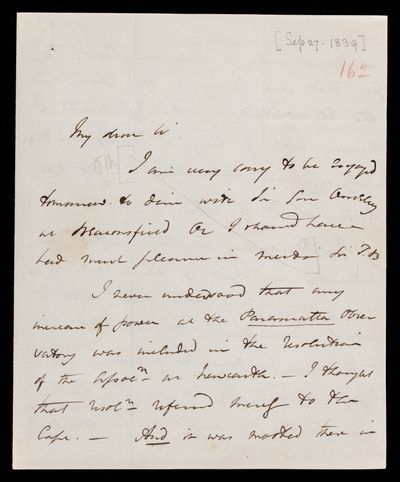 [Sep 27. 1839]
162
My dear Sir
I am very sorry to be engaged
tomorrow to dine with Sir
at Beaconsfield or I should have
had much pleasure in meeting Sir T. B
I never understood that any
increase of power at the Paramatta Obser
vatory was included in the resolution
of the Assocn at Newcastle. — I thought
that resoln referred merely to the
Cape. — And it was mooted there in